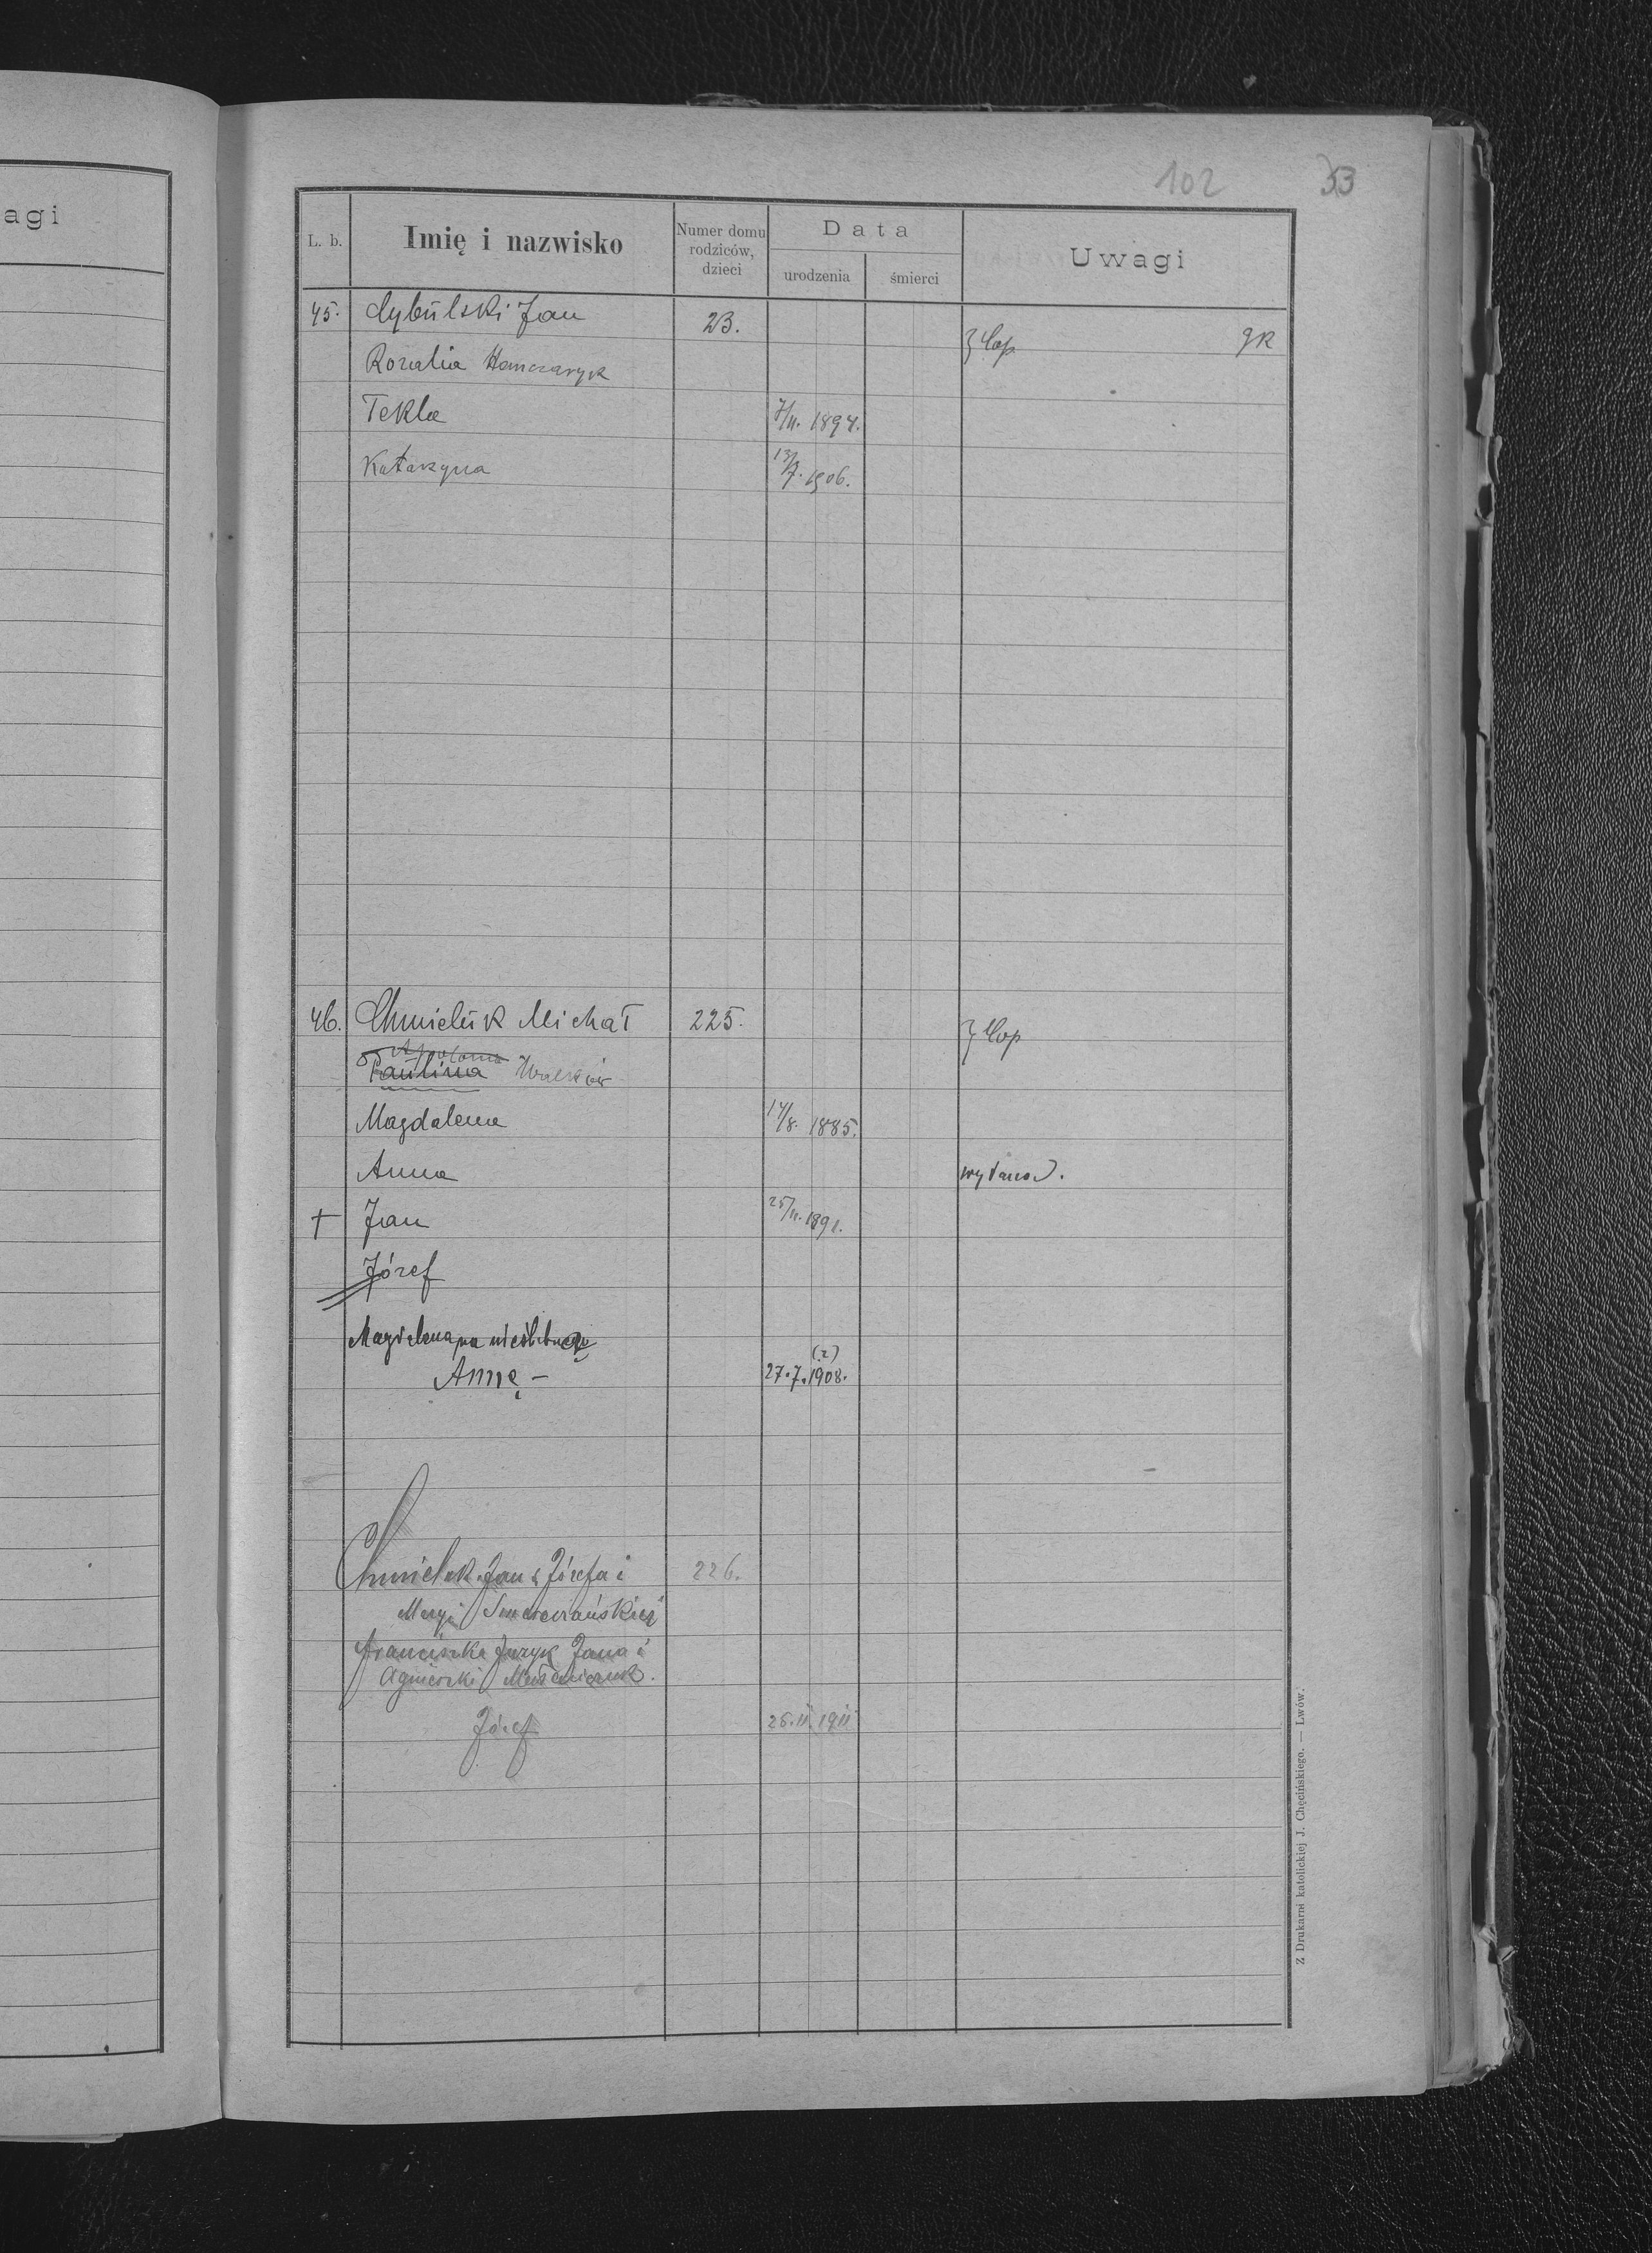 agi
102 53
L. b. Imię i nazwisko Numer domu rodziców, dzieci Data urodzenia śmierci Uwagi
45. Cybulski Jan 23. } Cop gR
Rozalia Hanczaryk
Tekla 7/11. 1894.
Katarzyna 13/7. 1906.
46. Chmieluk Michał 225. } Cop
Apolonia
Paulina
Magdalena 14/8. 1885.
Anna
† Jan 25/11. 1891.
Józef
Magdalena ma nieślubną (2)
Annę – 27.7.1908.
Chmieluk Jan s. Józefa i 226.
Maryi
Franciszka Juzyk Jana i
Agnieszki
Józef 26.II.1911
Z Drukarni katolickiej J. Chęcińskiego. — Lwów.